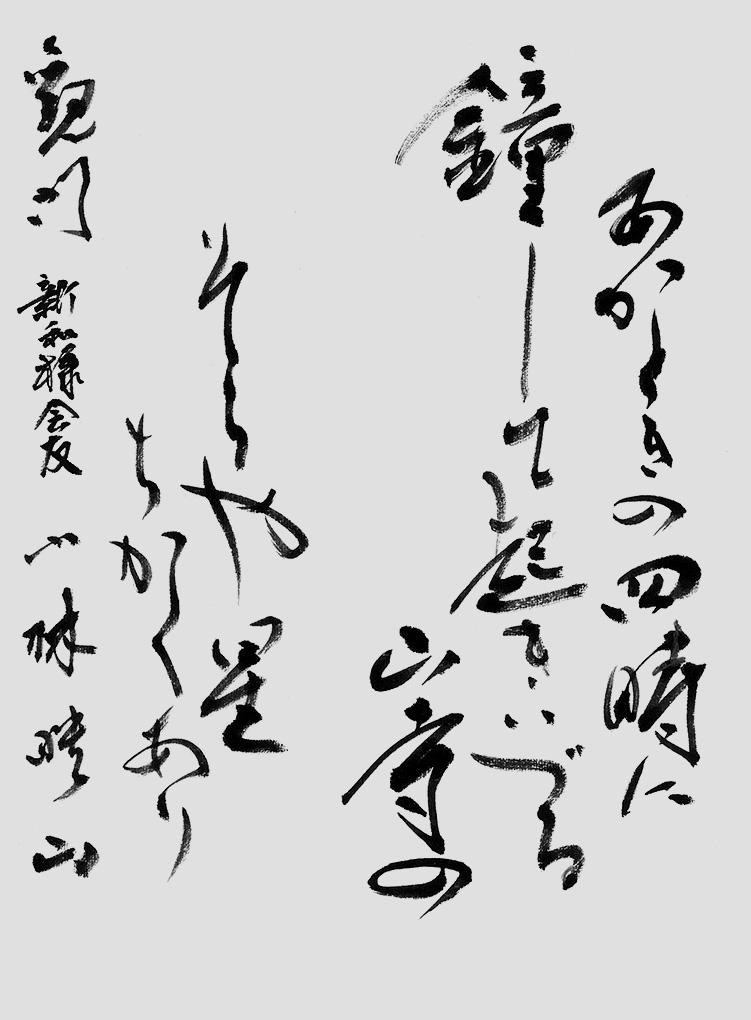 あかときの四時に
鐘して起きいづる
山寺の
そらや星
ちかくあり
観 新和様会友 小林 山